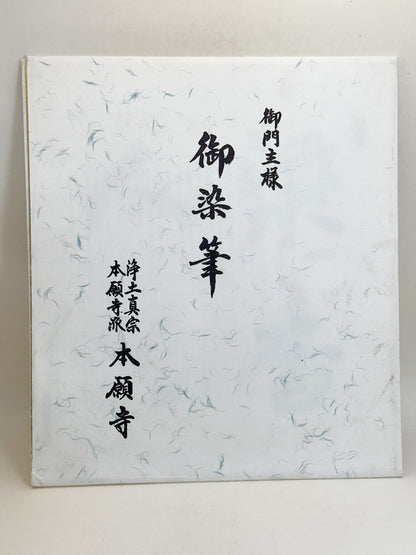 御門主様
御染筆
浄土真宗
本願寺派
本願寺